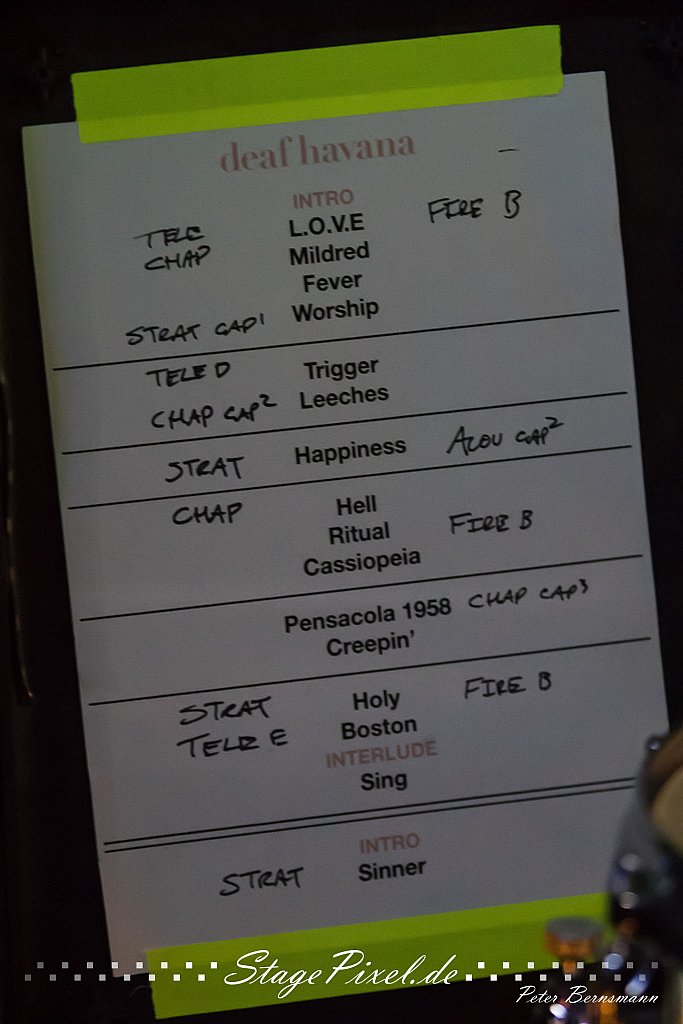 deaf havana
INTRO
TELE L.O.V.E FIRE B
CHAP Mildred
Fever
STRAT CAP1 Worship
TELE D Trigger
CHAP CAP2 Leeches
STRAT Happiness ACOU CAP2
CHAP Hell
Ritual FIRE B
Cassiopeia
Pensacola 1958 CHAP CAP3
Creepin'
STRAT Holy FIRE B
TELE E Boston
INTERLUDE
Sing
INTRO
STRAT Sinner
StagePixel.de
Peter Bernsmann